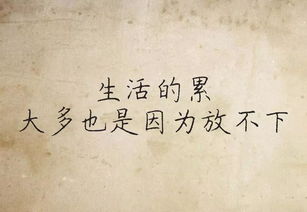 生活的累
大多也是因为放不下